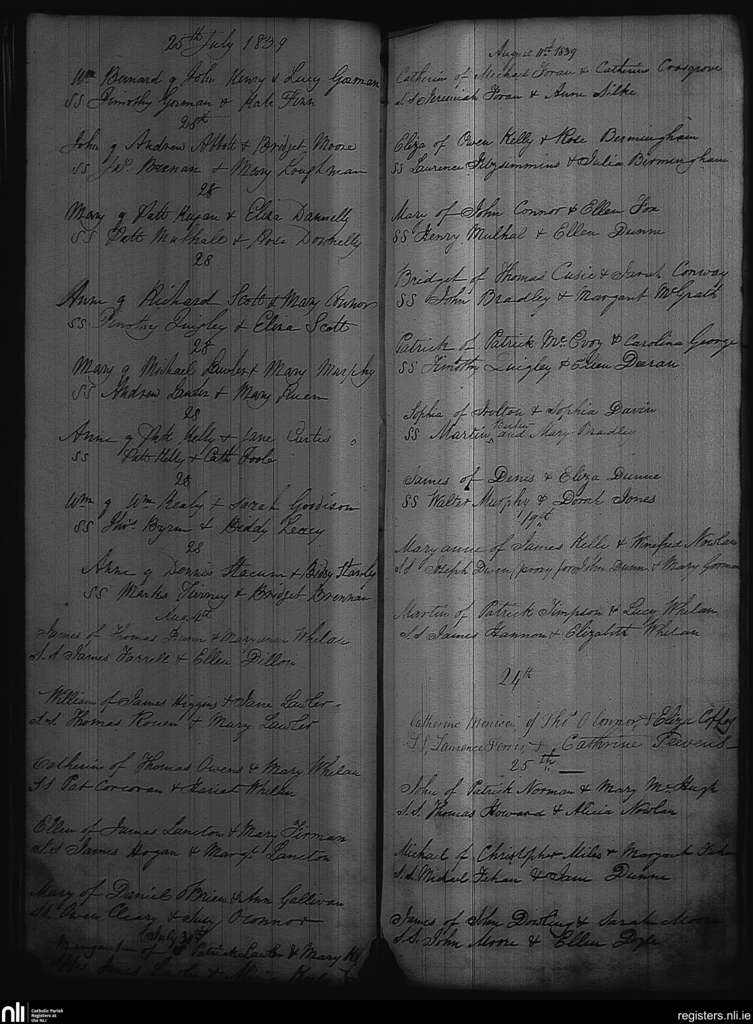 25th July 1839
Wm Bernard of John Henry & Lucy Gorman
SS Timothy Gorman & Kate Finn
28th
John of Andrew Abbott & Bridget Moore
SS Jas. Brenan & Mary Loughman
28
Mary of Patt Hugan & Eliza Dannelly
SS Patt Mulhale & Rose Donnelly
28
Anne of Richard Scott & Mary Connor
SS Timothy Quigley & Eliza Scott
28
Mary of Michael Lawler & Mary Murphy
SS Andrew & Mary
28
Anne of Patt Kelly & Jane Curtis
SS Patt Kelly & Cath Toole
28
Wm of Wm Healy & Sarah Goodison
SS Thos Byrne & Biddy Leacy
28
Anne of Dennis & Biddy
SS Marks Tierney & Bridget Brennan
Aug
James of Thomas Dunn & Maryanne Whelan
S.S James Farrell & Ellen Dillon
William of James Higgins & Jane Lawler
S.S. Thomas & Mary Lawler
Catherine of Thomas Owens & Mary Whelan
SS Pat Corcoran & Hariat Whelan
Ellen of James Lancton & Mary
S.S James Hogan & Margt Lancton
Mary of Daniel OBrien & Ann Gallivan
SS. Owen Cleary & Judy Oconnor
July
Margaret of Patrick Lawler & Mary
James &
August 11th 1839
Catherine of Michael Foran & Catherine Cosgrove
S.S Jeremiah Foran & Anne
Eliza of Owen Kelly & Rose Bermingham
SS Laurence Fitzsimmins & Julia Birmingham
Mary of John Connor & Ellen Fox
SS Henry Mulhal & Ellen Dunne
Bridget of Thomas Cusic & Sarah Conway
SS John Bradley & Margaret McGrath
Patrick of Patrick McEvoy & Carolina George
SS Timothy Quigley & Ellen Deeran
Sophia of & Sophia Davin
SS Martin and Mary Bradley
James of Denis & Eliza Dunne
SS Walter Murphy & Dorah Jones
19th
Maryanne of James Kelly & Winefred Nowlan
S.S Joseph Dunn, proxy for John Dunn & Mary Gorman
Martin of Patrick Timpson & Lucy Whelan
S.S James Hannon & Elizabeth Whelan
24th
Catherine Monica of Thos O Connor & Eliza Coffey
S.S. Laurence & Cathrine
25th
John of Patrick Norman & Mary McHugh
S.S. Thomas Howard & Alicia Nowlan
Michael of Christopher Miles & Margaret
S.S Michael & Jane Dunne
James of John Dowling & Sarah Moore
S.S. John Moore & Ellen
nli Catholic Parish
Registers at
the NLI
registers.nli.ie